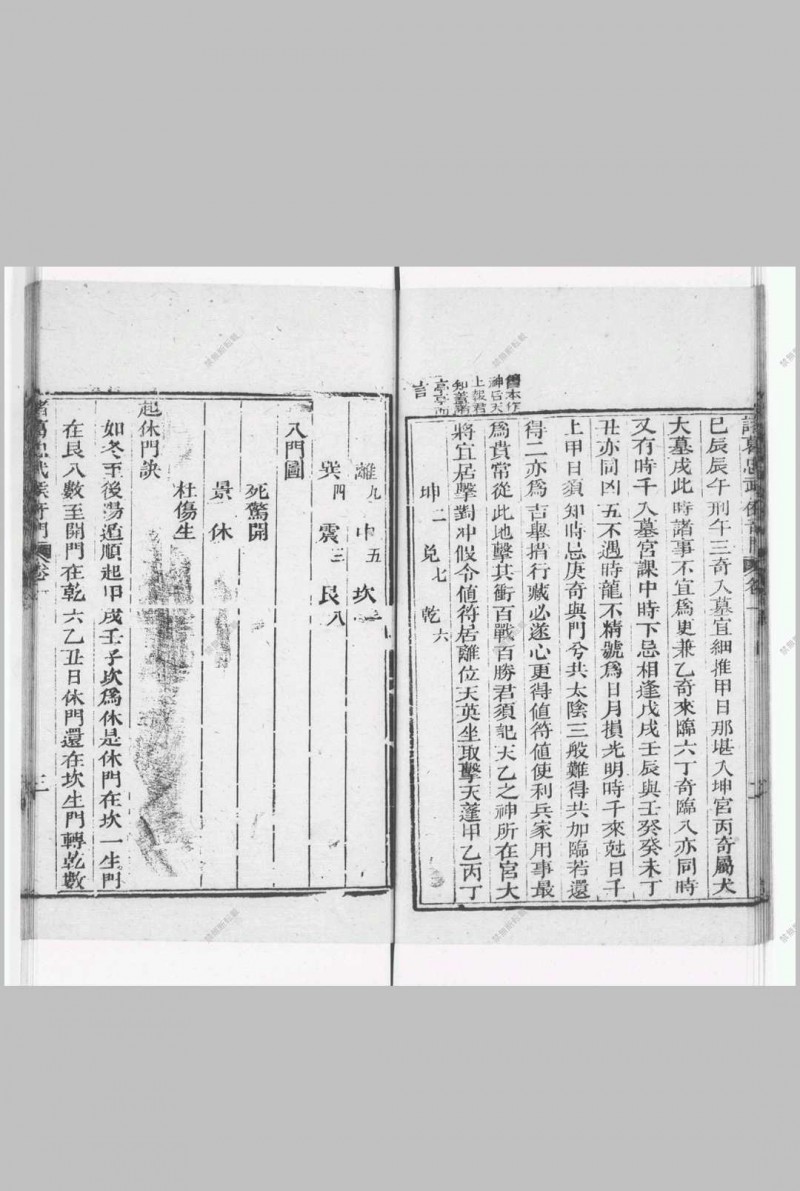 巳辰辰午刑午三奇入墓宜細推甲日那堪入坤宮丙奇屬犬
大墓戌此時諸事不宜爲更兼乙奇來臨六丁奇臨八亦同時
又有時干入墓宮課中時下忌相逢戊戌壬辰與壬癸癸未丁
丑亦同凶五不遇時龍不精號爲日月損光明時干來尅日干
上甲日須知時忌庚奇與門兮共太陰三般難得共加臨若還
得二亦爲吉舉措行藏必遂心更得値符値使利兵家用事最
爲貴常從此地擊其衝百戰百勝君須記天乙之神所在宮大
將宜居擊對冲假令値符居離位天英坐取擊天蓬甲乙丙丁
坤二 兌七 乾六
舊本作
神呂天
上報君
知蓋諸
亭亭而
言
離九 中五 坎一
巽四 震三 艮八
八門圖
死驚開
景 休
杜傷生
起休門訣
如冬至後蕩遁順起甲戌壬子坎爲休是休門在坎一生門
在艮八數至開門在乾六乙丑日休門還在坎生門轉乾數
諸葛忠武侯奇門 卷一 三